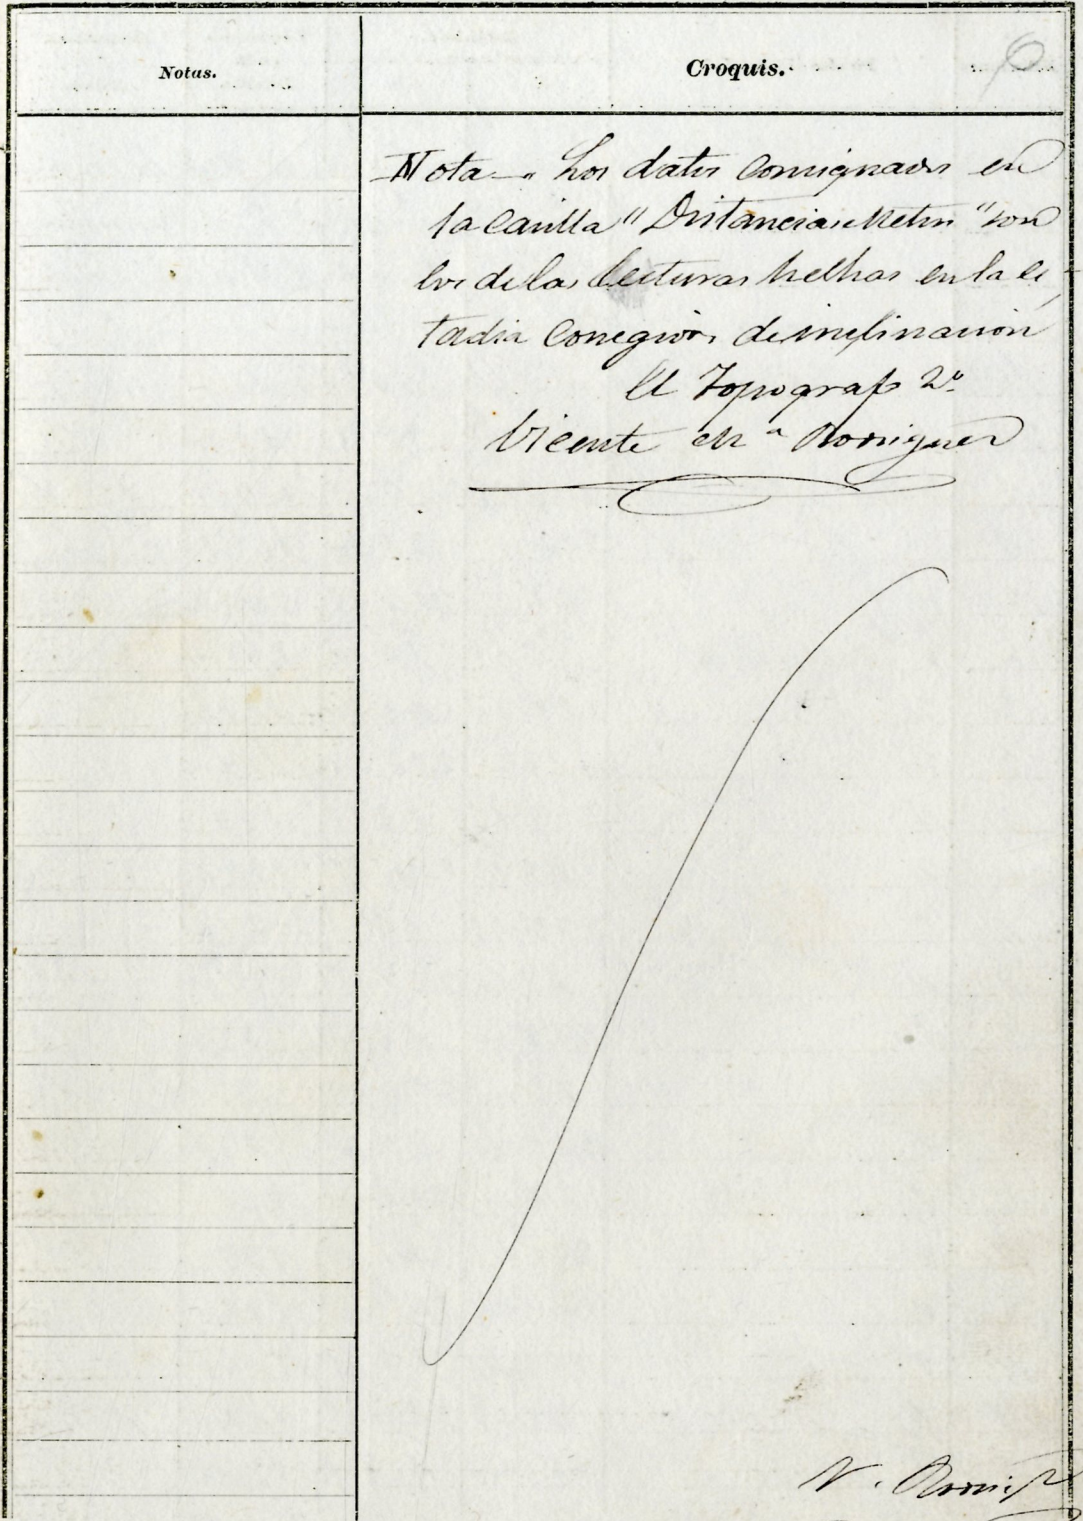 Notas.
Croquis.
6
Nota — Los datos consignados en
la casilla "Distancias Metros" son
los de las lecturas hechas en la es-
tadia corregidos de inclinación
El Topografo 2º
Vicente Mª Rodriguez
V. Rodrig